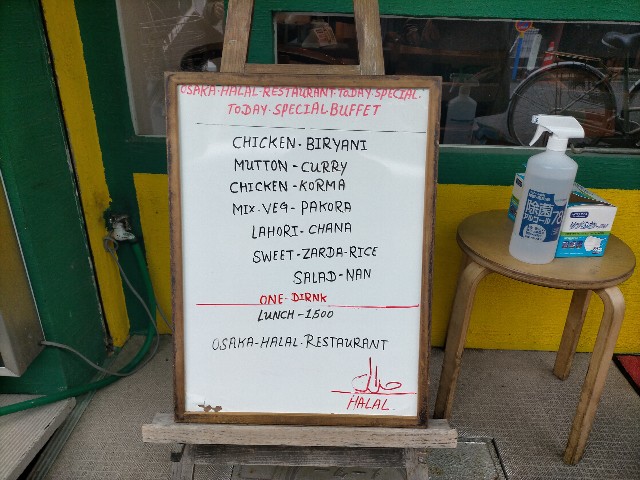 OSAKA-HALAL-RESTAURANT-TODAY-SPECIAL.
TODAY-SPECIAL BUFFET
CHICKEN-BIRYANI
MUTTON-CURRY
CHICKEN-KORMA
MIX-VEG-PAKORA
LAHORI-CHANA
SWEET-ZARDA-RICE
SALAD-NAN
ONE-DIRNK
LUNCH-1,500
OSAKA-HALAL-RESTAURANT
حلال
HALAL
除菌
アルコール